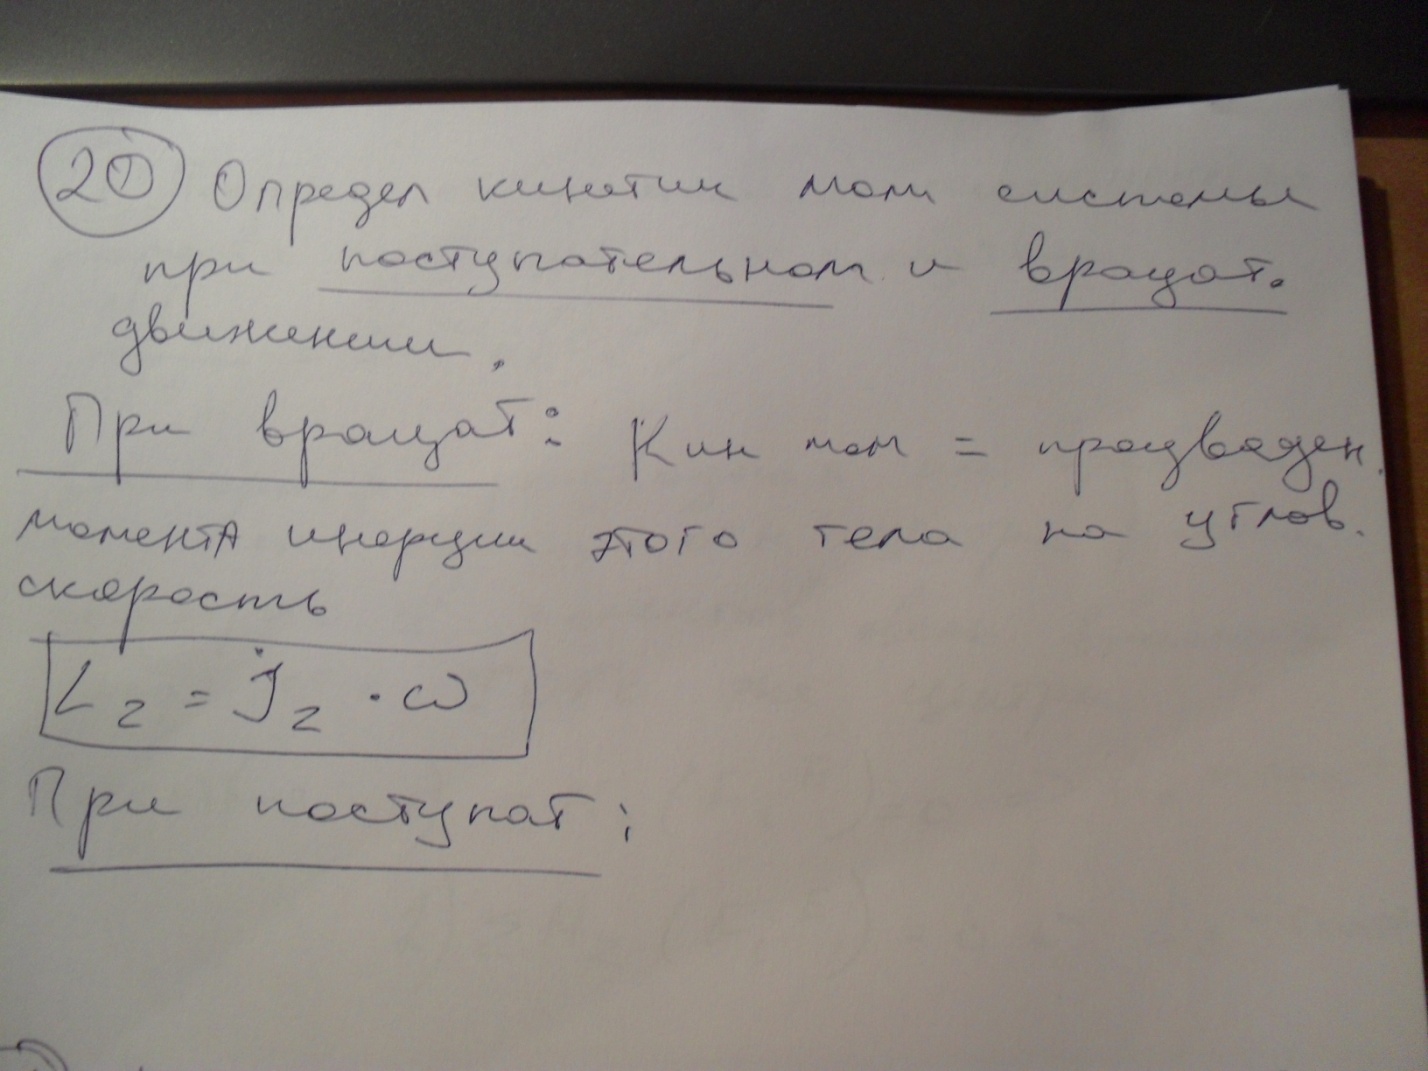 2D Определ кинетич мом системы
при поступательном и вращат.
движении.
При вращат: Кин мом = произведен.
момента инерции этого тела на углов.
скорость
Lz = Jz · ω
При поступат: